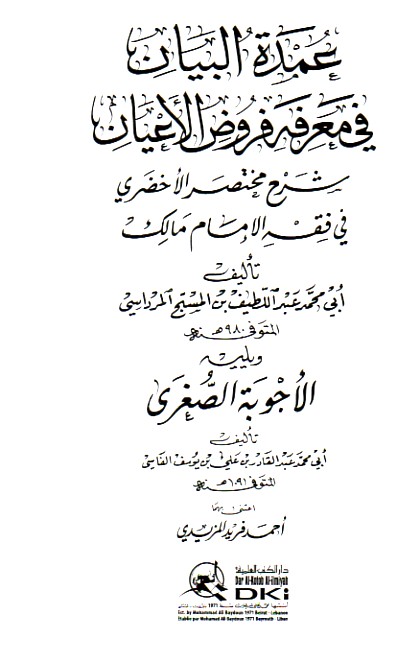 عُمْدَةُ البَيَانِ
فِي مَعْرِفَةِ فُرُوضِ الأَعْيَانِ
شرح مختصر الأخضري
في فقه الإمام مالك
تأليف
أبي محمد عبد اللطيف بن المسبح المرداسي
المتوفى ٩٨٠ هـ سنة
ويليه
الأجوبة الصغرى
تأليف
أبي محمد عبد القادر بن علي بن يوسف الفاسي
المتوفى ١٠٩١ هـ سنة
اعتنى بهما
أحمد فريد المزيدي
دار الكتب العلمية
Dar Al-Kotob Al-ilmiyah
DKi
Est. by Mohammad Ali Baydoun 1971 Beirut - Lebanon
Etablie par Mohamad Ali Baydoun 1971 Beyrouth - Liban